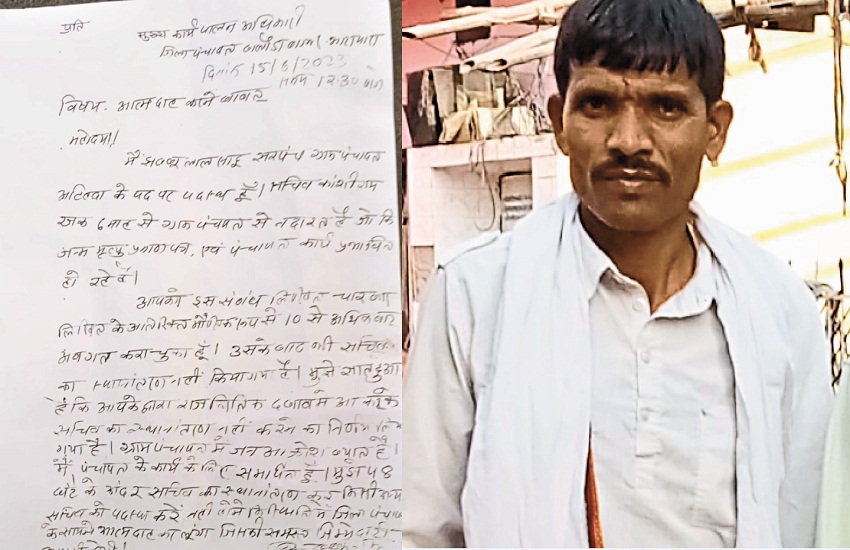 प्रति
मुख्य कार्यपालन अधिकारी
जिला पंचायत बलौदा बाजार भाटापारा
दिनांक 15/6/2023
समय 12:30 बजे
विषय- आत्मदाह करने बाबत
महोदया।
मैं लाल साहू सरपंच ग्राम पंचायत
के पद पर पदस्थ हूँ। सचिव कांशीराम
रजक 6 माह से ग्राम पंचायत से नदारत है जो कि
जन्म मृत्यु प्रमाण पत्र, एवं पंचायत कार्य प्रभावित
हो रहे हैं।
आपको इस संबंध लिखित चार बार
लिखित के अतिरिक्त मौखिक रूप से 10 से अधिक बार
अवगत करा चुका हूँ। उसके बाद भी सचिव
का स्थानांतरण नहीं किया गया है। मुझे ज्ञात हुआ
है कि आपके द्वारा राजनितिक दबाव में आ करके
सचिव का स्थानांतरण नहीं करने का निर्णय लिया
गया है। ग्राम पंचायत में जन आक्रोश व्याप्त है।
मैं पंचायत के कार्य के लिए समर्पित हूँ। 48
घंटे के अंदर सचिव का स्थानांतरण कर किसी अन्य
सचिव को पदस्थ करें नहीं होने कि स्थिति में जिला पंचायत
के सामने आत्मदाह करूंगा जिसकी समस्त जिम्मेदारी